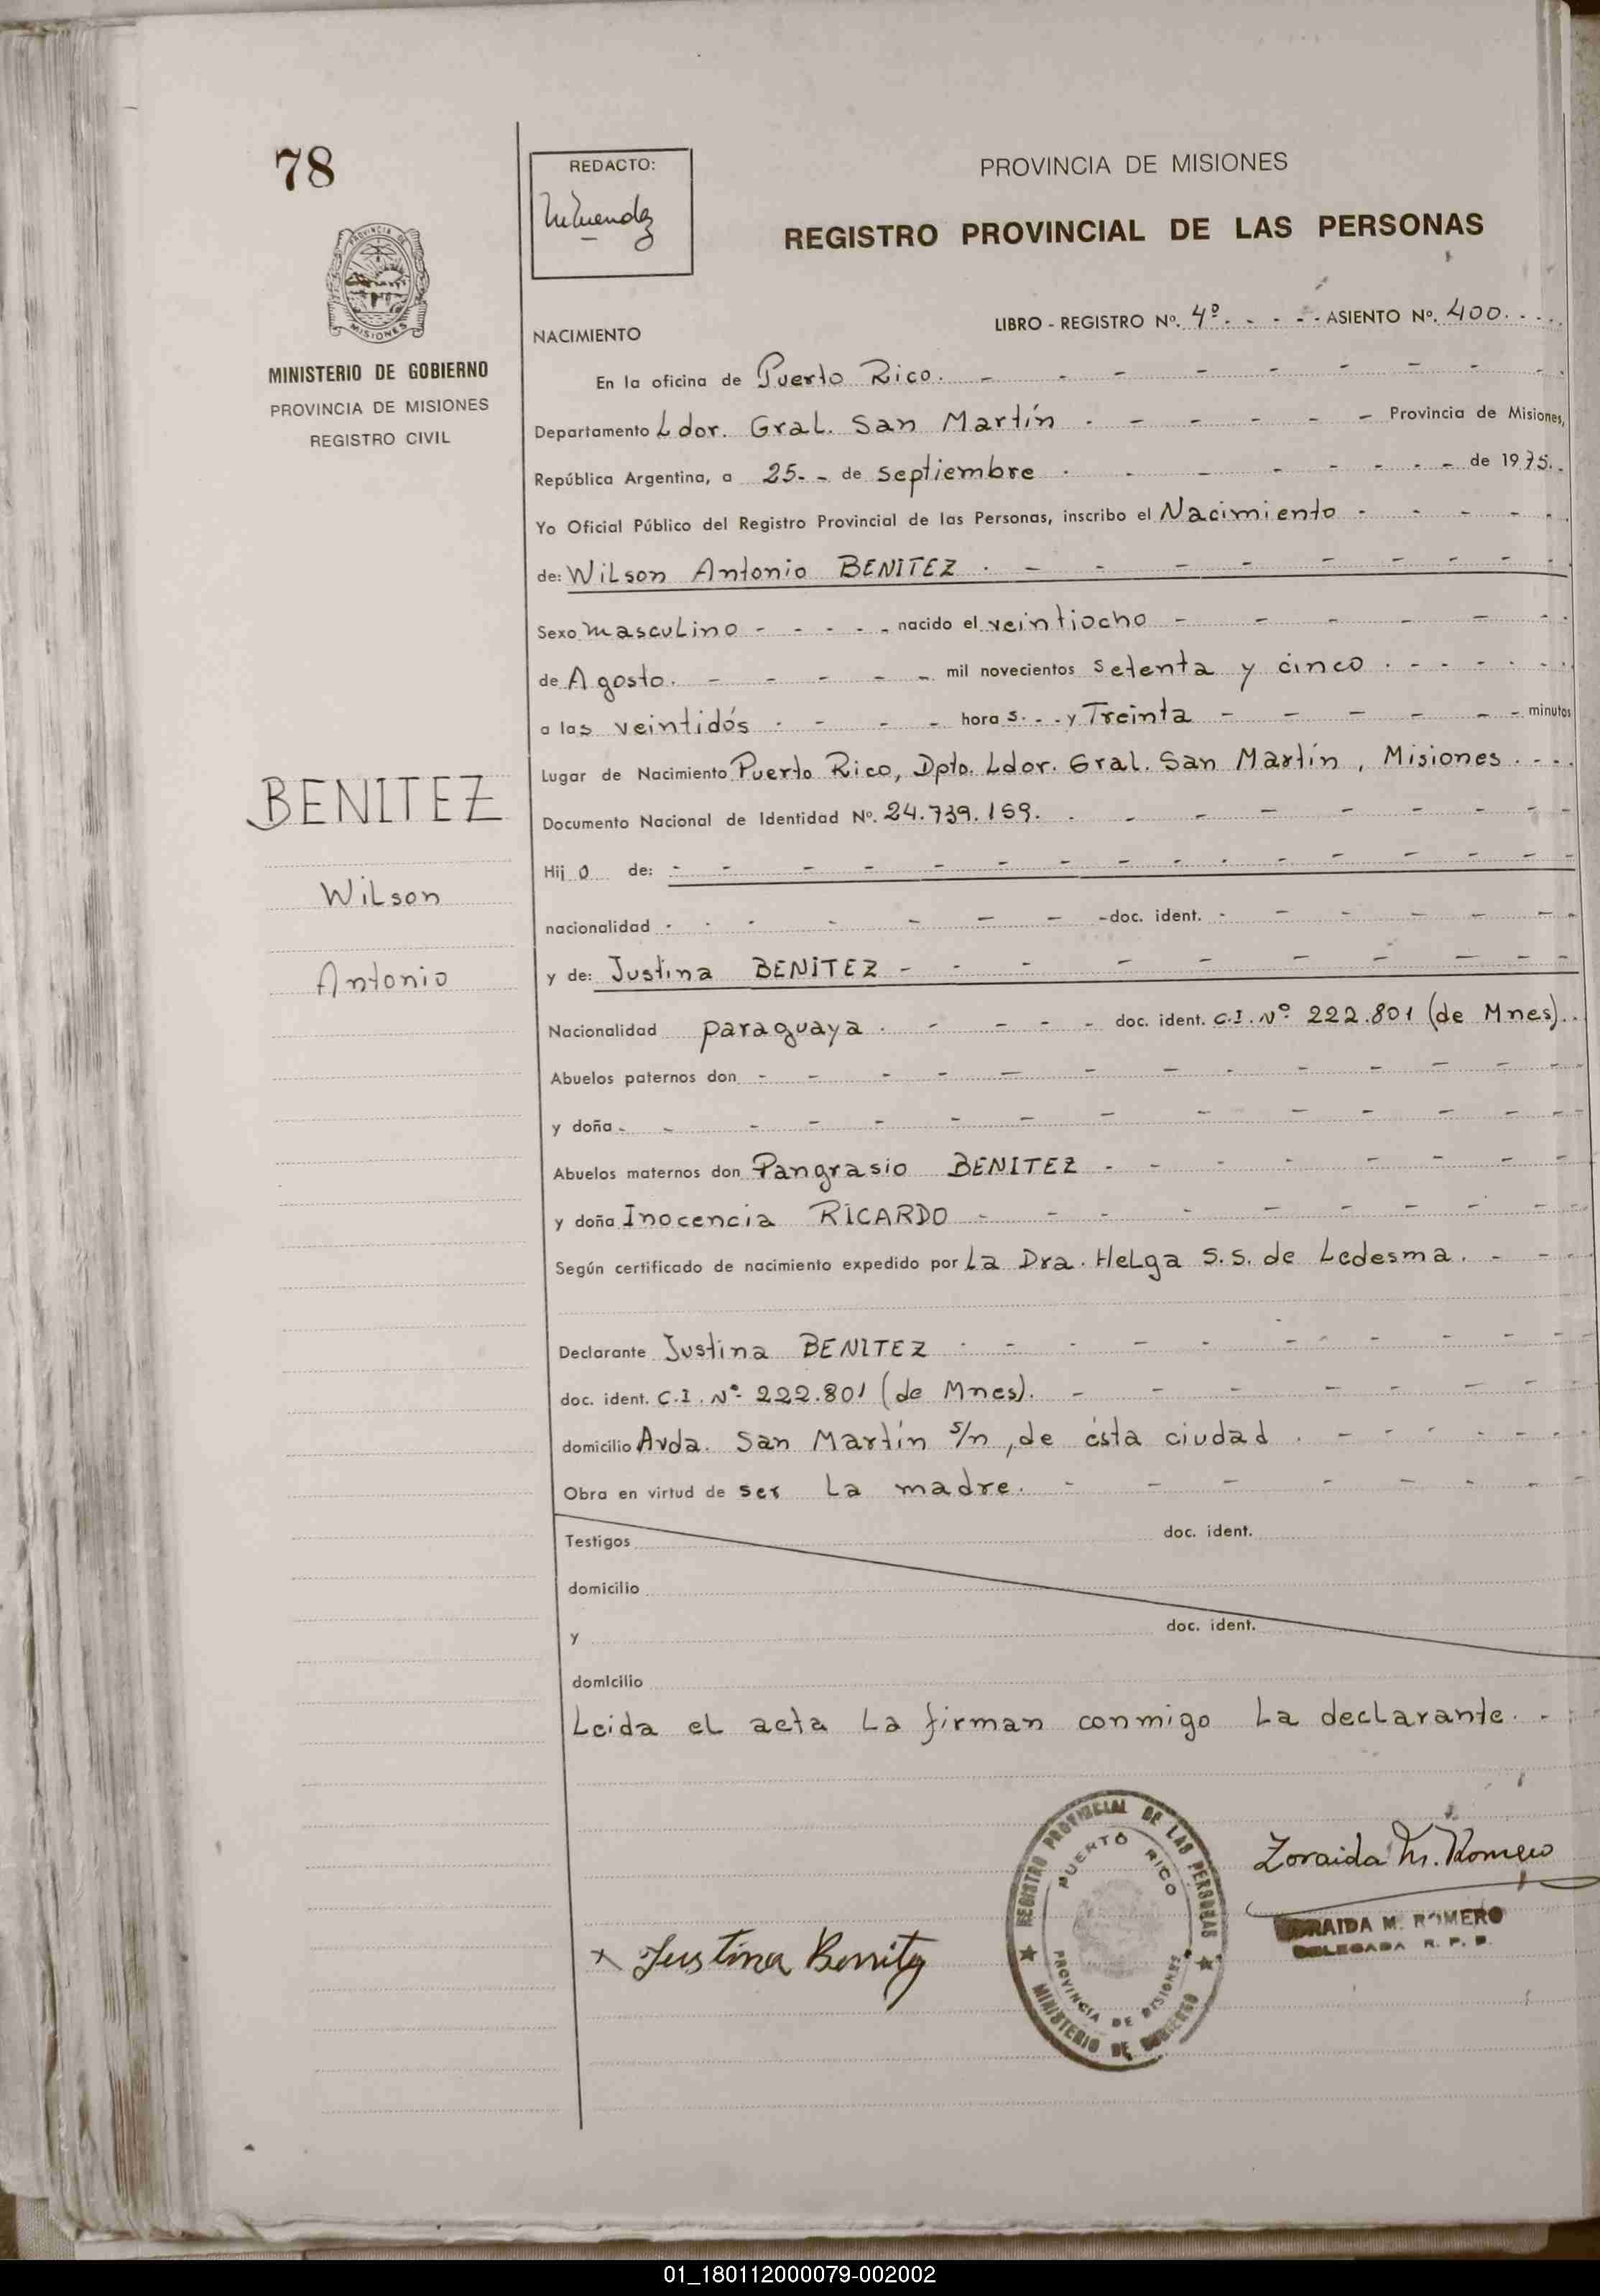 78
REDACTO:
PROVINCIA DE MISIONES
REGISTRO PROVINCIAL DE LAS PERSONAS
PROVINCIA DE
MISIONES
MINISTERIO DE GOBIERNO
PROVINCIA DE MISIONES
REGISTRO CIVIL
NACIMIENTO
LIBRO - REGISTRO Nº. 4º - - - - - ASIENTO Nº. 400. - - -
En la oficina de Puerto Rico. - - - - - - - - -
Departamento Ldor. Gral. San Martín - - - - - - Provincia de Misiones,
República Argentina, a 25. - - de septiembre - - - - - - - - de 1975. -
Yo Oficial Público del Registro Provincial de las Personas, inscribo el Nacimiento - - - - -
de: Wilson Antonio BENITEZ - - - - - - - - -
Sexo masculino - - - - - nacido el veintiocho - - - - - - -
de Agosto. - - - - - mil novecientos setenta y cinco - - - - - - -
a las veintidós - - - - hora s. - - y Treinta - - - - - - minutos
Lugar de Nacimiento Puerto Rico, Dpto. Ldor. Gral. San Martín, Misiones - - - -
Documento Nacional de Identidad Nº. 24.739.159. - - - - - - - -
BENITEZ
Wilson
Antonio
Hij o de: - - - - - - - - - - - - - - -
nacionalidad - - - - - - - - doc. ident. - - - - - - -
y de: Justina BENITEZ - - - - - - - - - -
Nacionalidad paraguaya - - - - - doc. ident. C.I. Nº 222.801 (de Mnes). -
Abuelos paternos don - - - - - - - - - - - - -
y doña - - - - - - - - - - - - - -
Abuelos maternos don Pangrasio BENITEZ - - - - - - - -
y doña Inocencia RICARDO - - - - - - - - - -
Según certificado de nacimiento expedido por La Dra. Helga S.S. de Ledesma. - - -
Declarante Justina BENITEZ - - - - - - - - - - -
doc. ident. C.I. Nº 222.801 (de Mnes). - - - - - - - -
domicilio Avda. San Martín s/n, de ésta ciudad - - - - - - - -
Obra en virtud de ser La madre. - - - - - - - -
Testigos doc. ident.
domicilio
y doc. ident.
domicilio
Leida el acta La firman conmigo La declarante. - -
REGISTRO PROVINCIAL DE LAS PERSONAS
PUERTO RICO
PROVINCIA DE MISIONES
MINISTERIO DE GOBIERNO
Zoraida M. Romero
ZORAIDA M. ROMERO
DELEGADA R. P. P.
x Justina Benitez
01_180112000079-002002